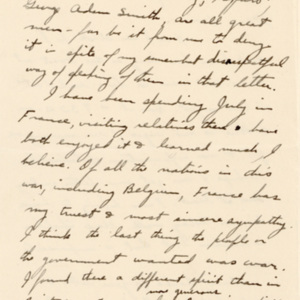 George Adam Smith, are all great
men – far be it from me to deny
it in spite of my somewhat disrespectful
way of speaking of them in that letter.
I have been spending July in
France, visiting relatives there & have
both enjoyed it & learned much I
believe. Of all the nations in this
war, including Belgium, France has
my truest & most sincere sympathy.
I think the last thing the people or
the government wanted was war.
I found there a different spirit than in
more generous